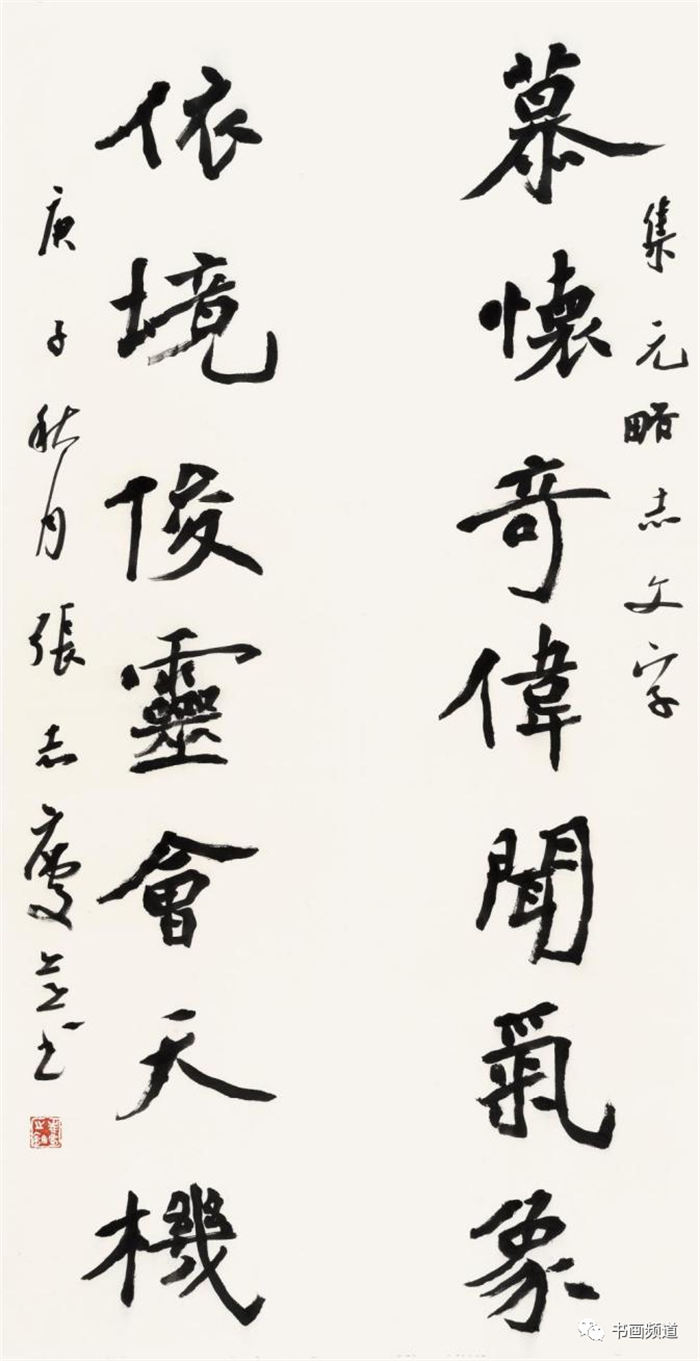 集元略志文字
慕懷奇偉聞氣象
依境俊靈會天機
庚子秋月張志慶並書
书画频道